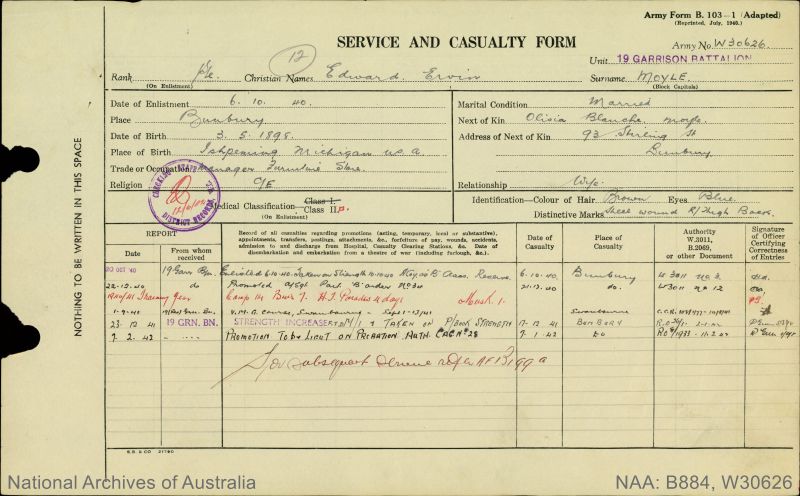 Army Form B. 103—1 (Adapted)
(Reprinted, July, 1940.)
SERVICE AND CASUALTY FORM
12
Army No. W30626
Unit 19 GARRISON BATTALION
Rank Pte Christian Names Edward Ervin Surname MOYLE
(On Enlistment) (On Enlistment) (Block Capitals)
Date of Enlistment 6. 10. 40.
Place Bunbury
Date of Birth 3. 5. 1898.
Place of Birth Ishpeming Michigan U.S.A.
Trade or Occupation Manager Furniture Store
Religion C/E
Medical Classification Class I. Class II.
DISTRICT RECORDS
Marital Condition Married
Next of Kin Olisia Blanche Moyle
Address of Next of Kin 93 Stirling St
Bunbury
Relationship Wife
Identification—Colour of Hair Brown Eyes Blue
Distinctive Marks Shell wound R/Thigh Back
NOTHING TO BE WRITTEN IN THIS SPACE
REPORT
Date
From whom received
Record of all casualties regarding promotions (acting, temporary, local or substantive), appointments, transfers, postings, attachments, &c., forfeiture of pay, wounds, accidents, admission to and discharge from Hospital, Casualty Clearing Stations, &c. Date of disembarkation and embarkation from a theatre of war (including furlough, &c.).
Date of Casualty
Place of Casualty
Authority W.3011, B.2069, or other document
Signature of Officer Certifying Correctness of Entries
20 OCT '40 19 Garr Bn. Enlisted 6.10.40. Taken on Strength 10.10.40 Reserve 6.10.40. Bunbury W 3011 No 3.
22.12.40 do Promoted A/Sgt Part B order No 34 21.12.40 do W3011 No 12
Camp 14 Days 7. H.T. Parades 4 days Musk 1.
1-9-41 V.M.G. Course, Swanbourne Swanbourne
23-12-41 19 GRN. BN. STRENGTH INCREASE & TAKEN ON P/BOOK STRENGTH 17-12-41 BUNBURY
7. 2. 42 do PROMOTION TO LIEUT ON PROBATION AUTH. 7. 1. 42 do
For subsequent service refer AF B199A
S.B. & CO 21780
National Archives of Australia
NAA: B884, W30626